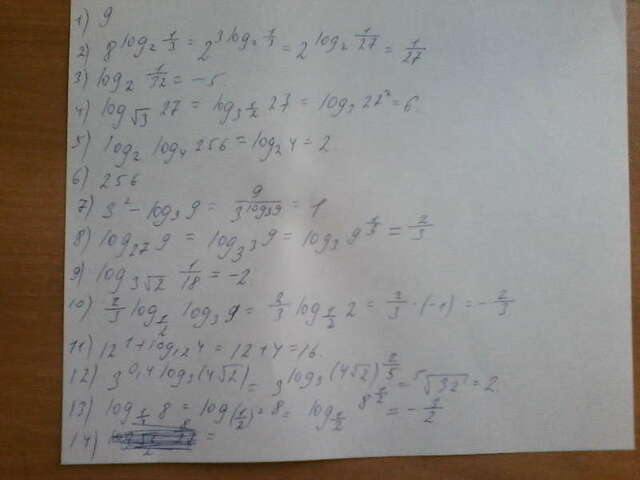 1) 9
2) 8^{log_2 1/3} = 2^{3 log_2 1/3} = 2^{log_2 1/27} = 1/27
3) log_2 1/32 = -5.
4) log_{√3} 27 = log_{3^{1/2}} 27 = log_3 27² = 6.
5) log_2 log_4 256 = log_2 4 = 2.
6) 256
7) 3^{2 - log_3 9} = 9/3^{log_3 9} = 1
8) log_{27} 9 = log_{3^3} 9 = log_3 9^{1/3} = 2/3
9) log_{3√2} 1/18 = -2.
10) 2/3 log_{1/2} log_3 9 = 2/3 log_{1/2} 2 = 2/3 · (-1) = -2/3
11) 12^{1+log_{12} 4} = 12+4=16.
12) 3^{0,4 log_3 (4√2)} = 3^{log_3 (4√2)^{2/5}} = ⁵√32 = 2.
13) 8 = 8 = log_{1/2} 8^{1/2} = -3/2
14) =